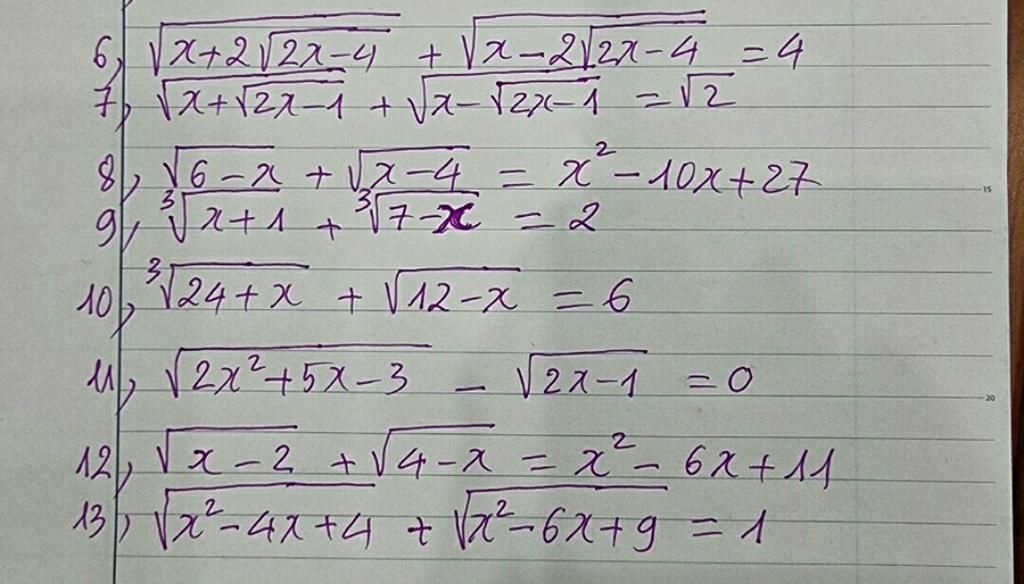 6, √(x+2√(2x-4)) + √(x-2√(2x-4)) = 4
7, √(x+√(2x-1)) + √(x-√(2x-1)) = √2
8, √(6-x) + √(x-4) = x² - 10x + 27
9, ³√(x+1) + ³√(7-x) = 2
10, ³√(24+x) + √(12-x) = 6
11, √(2x²+5x-3) - √(2x-1) = 0
12, √(x-2) + √(4-x) = x² - 6x + 11
13, √(x²-4x+4) + √(x²-6x+9) = 1
15
20